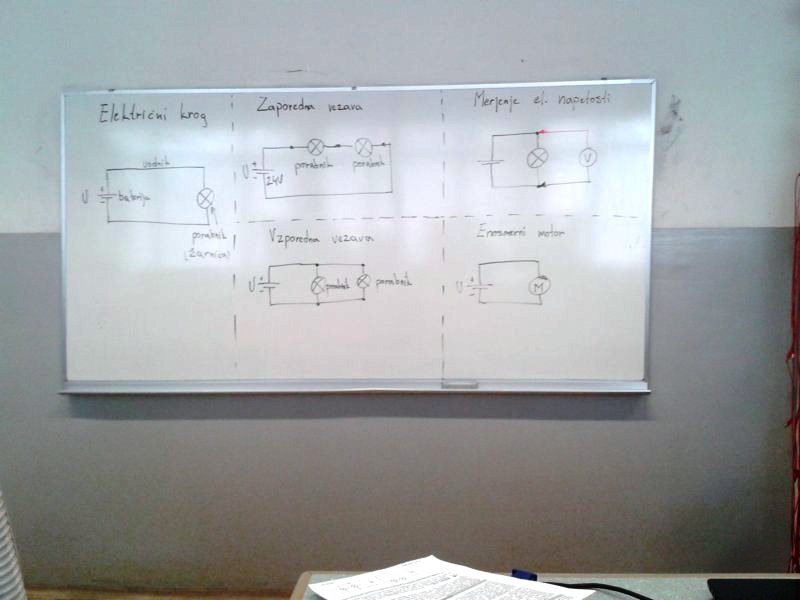 Električni krog
vodnik
U
+
-
baterija
porabnik
(žarnica)
Zaporedna vezava
U
+
-
24V
porabnik
porabnik
Vzporedna vezava
U
+
-
porabnik
porabnik
Merjenje el. napetosti
V
Enosmerni motor
U
+
-
M